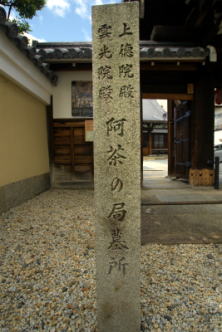 上德院殿
雲光院殿
阿茶の局墓所